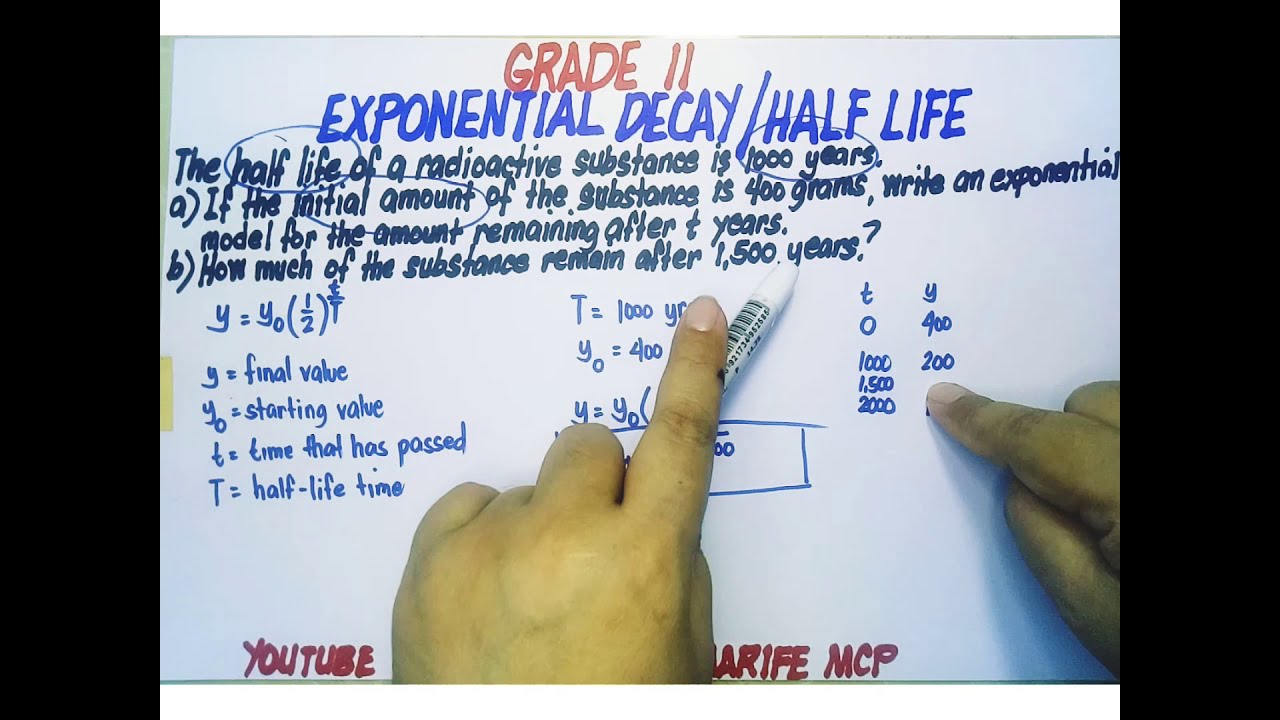 GRADE 11
EXPONENTIAL DECAY/HALF LIFE
The half life of a radioactive substance is 1000 years.
a) If the initial amount of the substance is 400 grams, write an exponential
model for the amount remaining after t years.
b) How much of the substance remain after 1,500 years?
y = y₀(1/2)^(t/T)
y = final value
y₀ = starting value
t = time that has passed
T = half-life time
T = 1000 yr
y₀ = 400
y = y₀(
00
t y
0 400
1000 200
1,500
2000
YOUTUBE ARIFE MCP